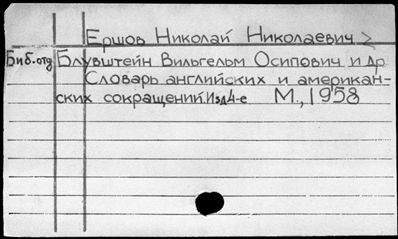 Ершов Николай Николаевич
Биб.отд Блувштейн Вильгельм Осипович и др
Словарь английских и американ-
ских сокращений. Изд 4-е М., 1958